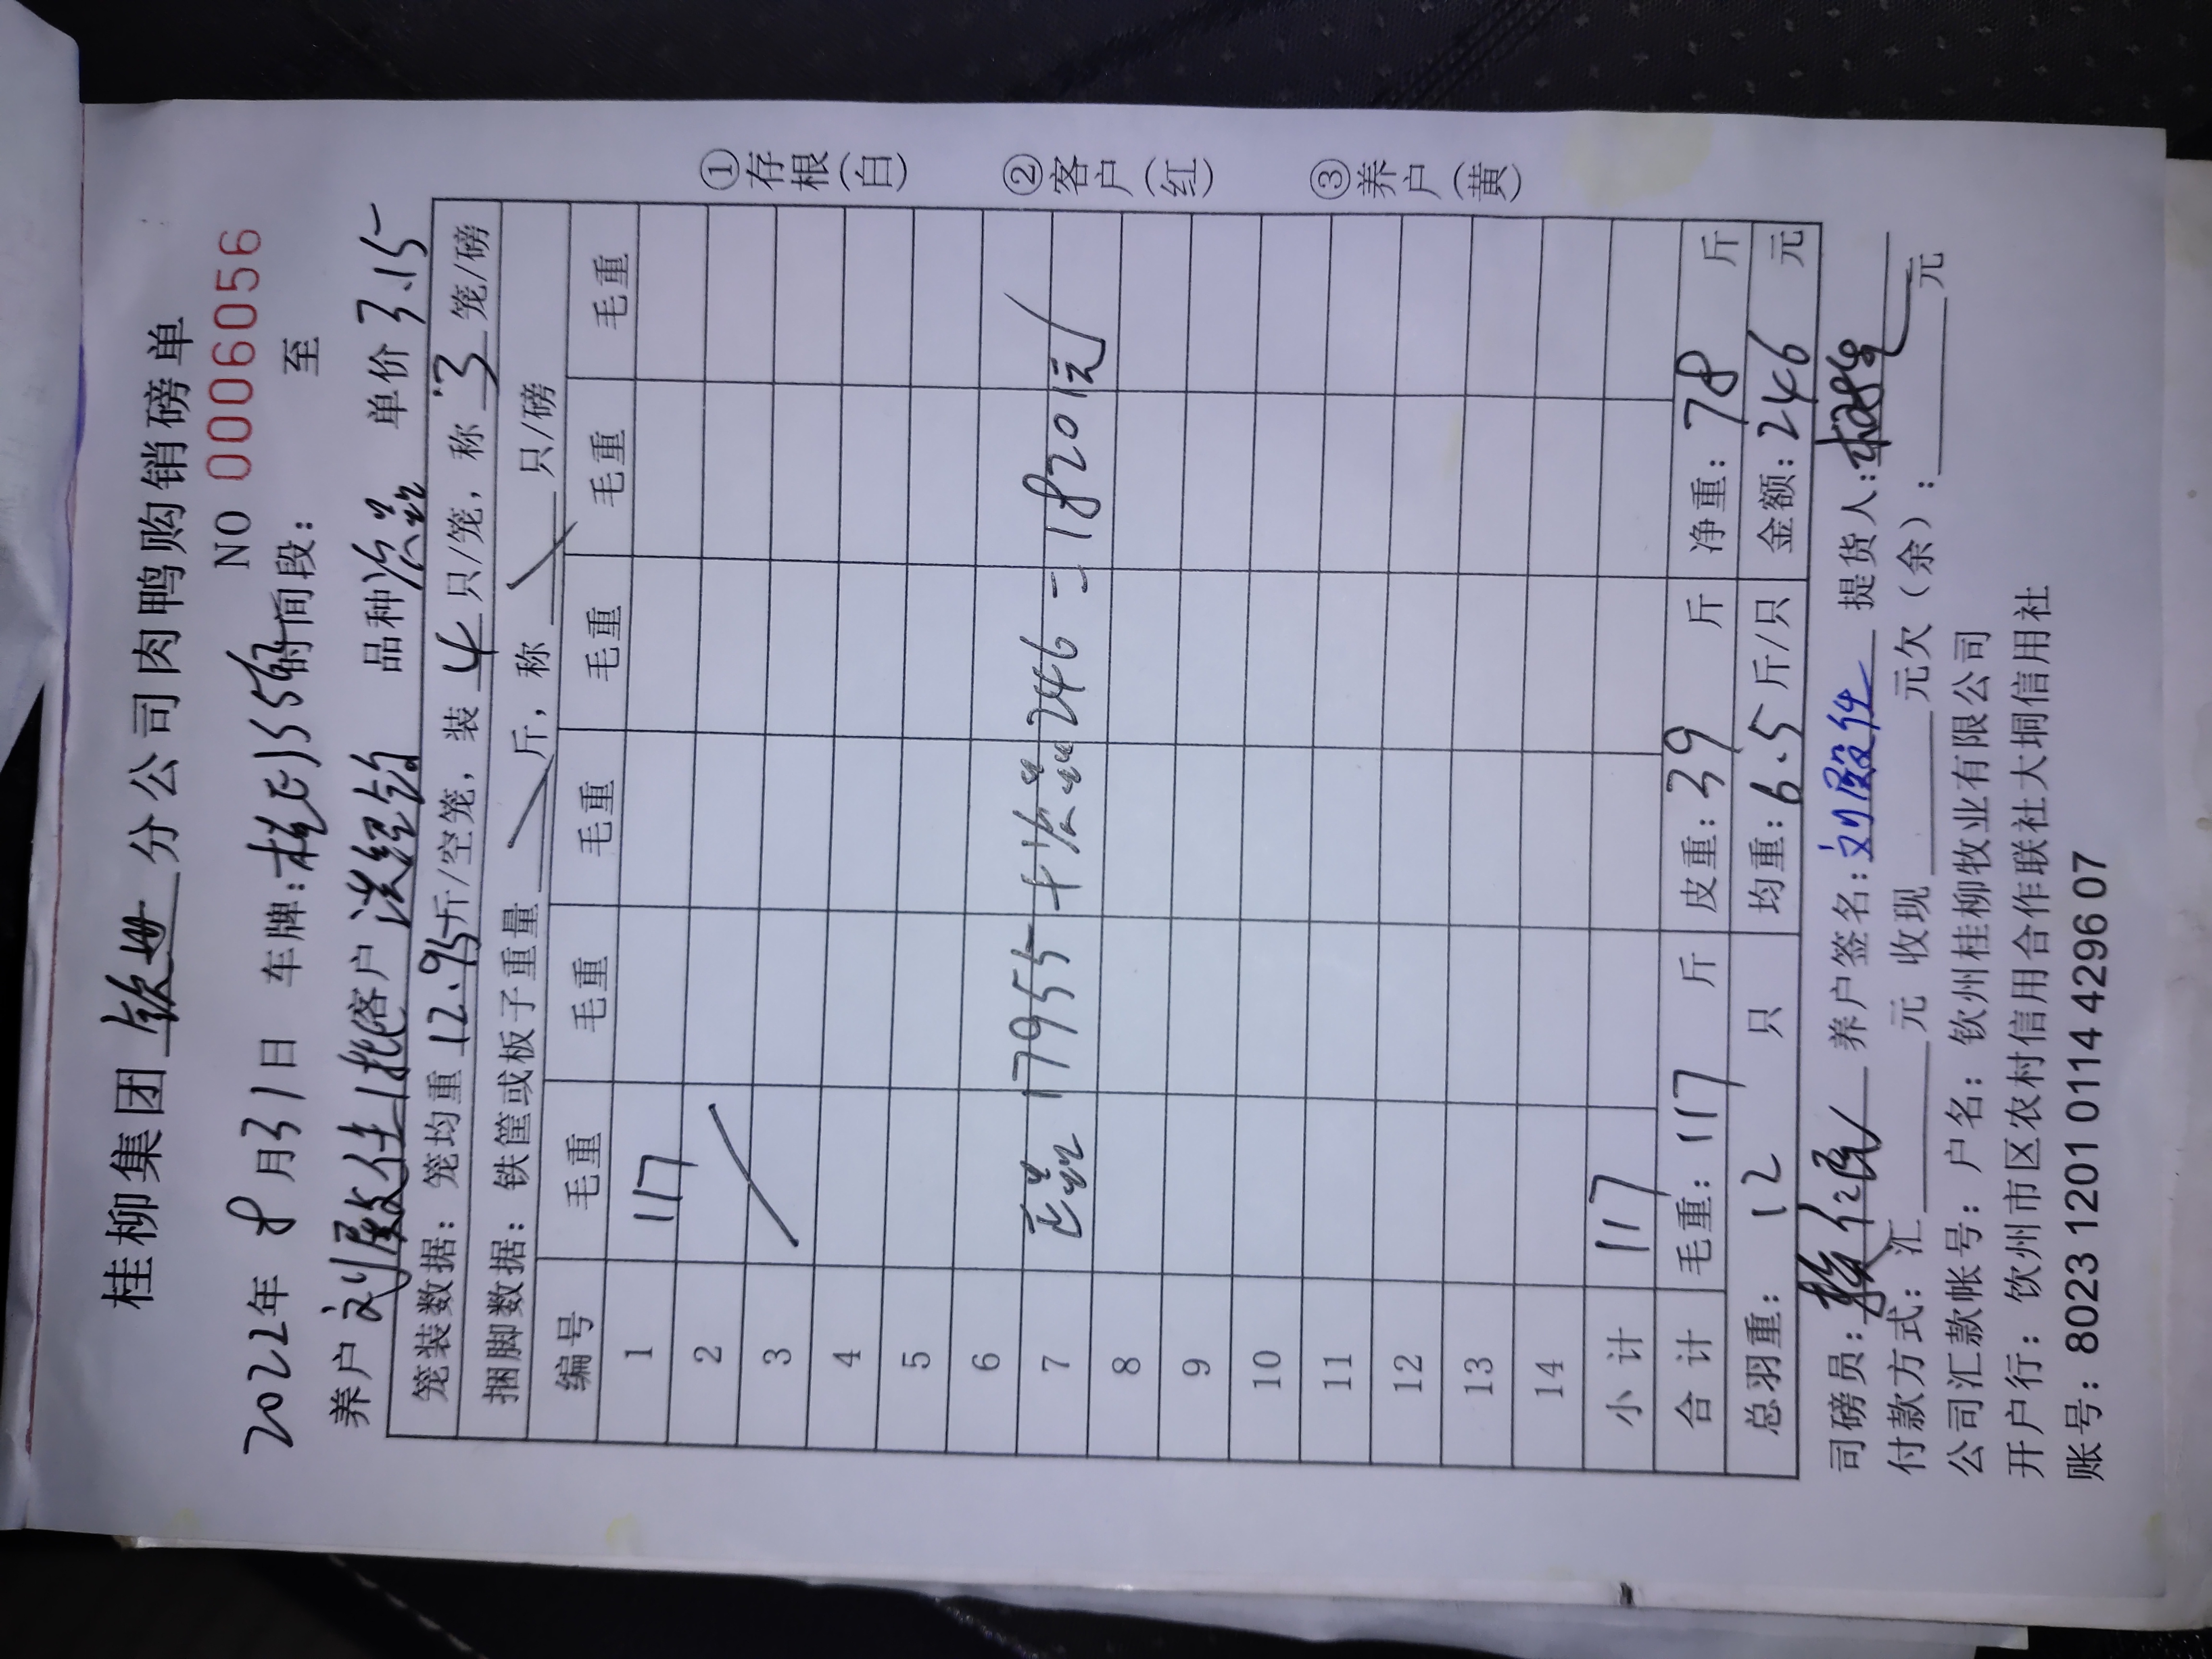 桂柳集团 钦州 分公司肉鸭购销磅单
NO 0006056
2022年 8 月31日 车牌: 时间段: 至
养户 刘殿任1批 客户 洪经钧 品种 单价 3.15
笼装数据: 笼均重 12.95斤/空笼, 装 4 只/笼, 称 3 笼/磅
捆脚数据: 铁筐或板子重量 斤, 称 只/磅
编号 毛重 毛重 毛重 毛重 毛重 毛重
1 117
2
3
4
5
6
7 17955 + 246 = 18201元
8
9
10
11
12
13
14
小 计 117
合 计 毛重: 117 斤 皮重: 39 斤 净重: 78 斤
总羽重: 12 只 均重: 6.5 斤/只 金额: 246 元
司磅员: 养户签名: 提货人:
付款方式: 汇 元 收现 元欠(余): 元
公司汇款帐号: 户名: 钦州桂柳牧业有限公司
开户行: 钦州市区农村信用合作联社大垌信用社
账号: 8023 1201 0114 4296 07
①存根(白) ②客户(红) ③养户(黄)